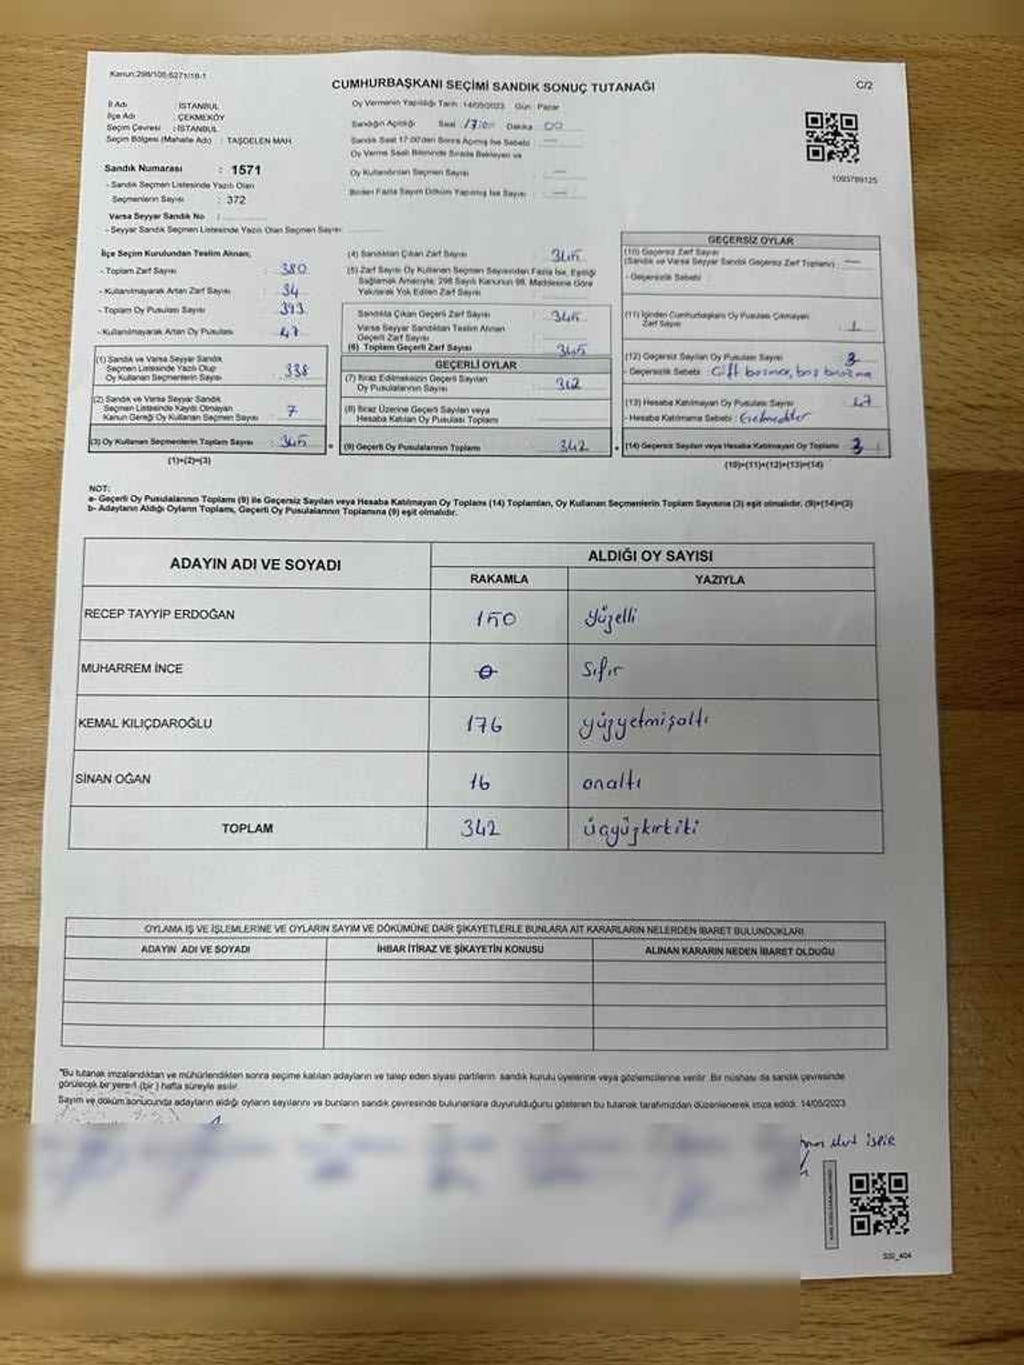 Kanun:298/105-6271/18-1
CUMHURBAŞKANI SEÇİMİ SANDIK SONUÇ TUTANAĞI
C/2
İl Adı : İSTANBUL
İlçe Adı : ÇEKMEKÖY
Seçim Çevresi : İSTANBUL
Seçim Bölgesi (Mahalle Adı) : TAŞDELEN MAH
Oy Vermenin Yapıldığı Tarih : 14/05/2023 Gün : Pazar
Sandığın Açıldığı Saat 17:00 Dakika 00
Sandık Saat 17:00'den Sonra Açılmış İse Sebebi : —
Oy Verme Saati Bitiminde Sırada Bekleyen ve
Oy Kullandırılan Seçmen Sayısı : —
Birden Fazla Sayım Döküm Yapılmış İse Sayısı : —
1093789125
Sandık Numarası : 1571
- Sandık Seçmen Listesinde Yazılı Olan
Seçmenlerin Sayısı : 372
Varsa Seyyar Sandık No :
- Seyyar Sandık Seçmen Listesinde Yazılı Olan Seçmen Sayısı :
İlçe Seçim Kurulundan Teslim Alınan;
- Toplam Zarf Sayısı : 380
- Kullanılmayarak Artan Zarf Sayısı : 34
- Toplam Oy Pusulası Sayısı : 393
- Kullanılmayarak Artan Oy Pusulası : 47
(1) Sandık ve Varsa Seyyar Sandık
Seçmen Listesinde Yazılı Olup
Oy Kullanan Seçmenlerin Sayısı : 338
(2) Sandık ve Varsa Seyyar Sandık
Seçmen Listesinde Kayıtlı Olmayan
Kanun Gereği Oy Kullanan Seçmen Sayısı : 7
(3) Oy Kullanan Seçmenlerin Toplam Sayısı : 345
(1)+(2)=(3)
(4) Sandıktan Çıkan Zarf Sayısı : 345
(5) Zarf Sayısı Oy Kullanan Seçmen Sayısından Fazla İse, Eşitliği
Sağlamak Amacıyla; 298 Sayılı Kanunun 98. Maddesine Göre
Yakılarak Yok Edilen Zarf Sayısı :
Sandıkta Çıkan Geçerli Zarf Sayısı : 345
Varsa Seyyar Sandıktan Teslim Alınan
Geçerli Zarf Sayısı :
(6) Toplam Geçerli Zarf Sayısı : 345
GEÇERLİ OYLAR
(7) İtiraz Edilmeksizin Geçerli Sayılan
Oy Pusulalarının Sayısı : 342
(8) İtiraz Üzerine Geçerli Sayılan veya
Hesaba Katılan Oy Pusulası Toplamı :
(9) Geçerli Oy Pusulalarının Toplamı : 342
GEÇERSİZ OYLAR
(10) Geçersiz Zarf Sayısı
(Sandık ve Varsa Seyyar Sandık Geçersiz Zarf Toplamı) : —
- Geçersizlik Sebebi :
(11) İçinden Cumhurbaşkanı Oy Pusulası Çıkmayan
Zarf Sayısı : 1
(12) Geçersiz Sayılan Oy Pusulası Sayısı : 3
- Geçersizlik Sebebi : Çift basma, boş
(13) Hesaba Katılmayan Oy Pusulası Sayısı : 47
- Hesaba Katılmama Sebebi : Gelmediler
(14) Geçersiz Sayılan veya Hesaba Katılmayan Oy Toplamı : 3
(10)+(11)+(12)+(13)=(14)
NOT:
a- Geçerli Oy Pusulalarının Toplamı (9) ile Geçersiz Sayılan veya Hesaba Katılmayan Oy Toplamı (14) Toplamları, Oy Kullanan Seçmenlerin Toplam Sayısına (3) eşit olmalıdır. (9)+(14)=(3)
b- Adayların Aldığı Oyların Toplamı, Geçerli Oy Pusulalarının Toplamına (9) eşit olmalıdır.
ADAYIN ADI VE SOYADI
ALDIĞI OY SAYISI
RAKAMLA YAZIYLA
RECEP TAYYİP ERDOĞAN 150 yüzelli
MUHARREM İNCE 0 sıfır
KEMAL KILIÇDAROĞLU 176 yüzyetmişaltı
SİNAN OĞAN 16 onaltı
TOPLAM 342 üçyüzkırkiki
OYLAMA İŞ VE İŞLEMLERİNE VE OYLARIN SAYIM VE DÖKÜMÜNE DAİR ŞİKAYETLERLE BUNLARA AİT KARARLARIN NELERDEN İBARET BULUNDUKLARI
ADAYIN ADI VE SOYADI İHBAR İTİRAZ VE ŞİKAYETİN KONUSU ALINAN KARARIN NEDEN İBARET OLDUĞU
"Bu tutanak imzalandıktan ve mühürlendikten sonra seçime katılan adayların ve talep eden siyasi partilerin sandık kurulu üyelerine veya gözlemcilerine verilir. Bir nüshası da sandık çevresinde
görülecek bir yere 1 (bir) hafta süreyle asılır.
Sayım ve döküm sonucunda adayların aldığı oyların sayılarını ve bunların sandık çevresinde bulunanlara duyurulduğunu gösteren bu tutanak tarafımızdan düzenlenerek imza edildi. 14/05/2023
SSI_404